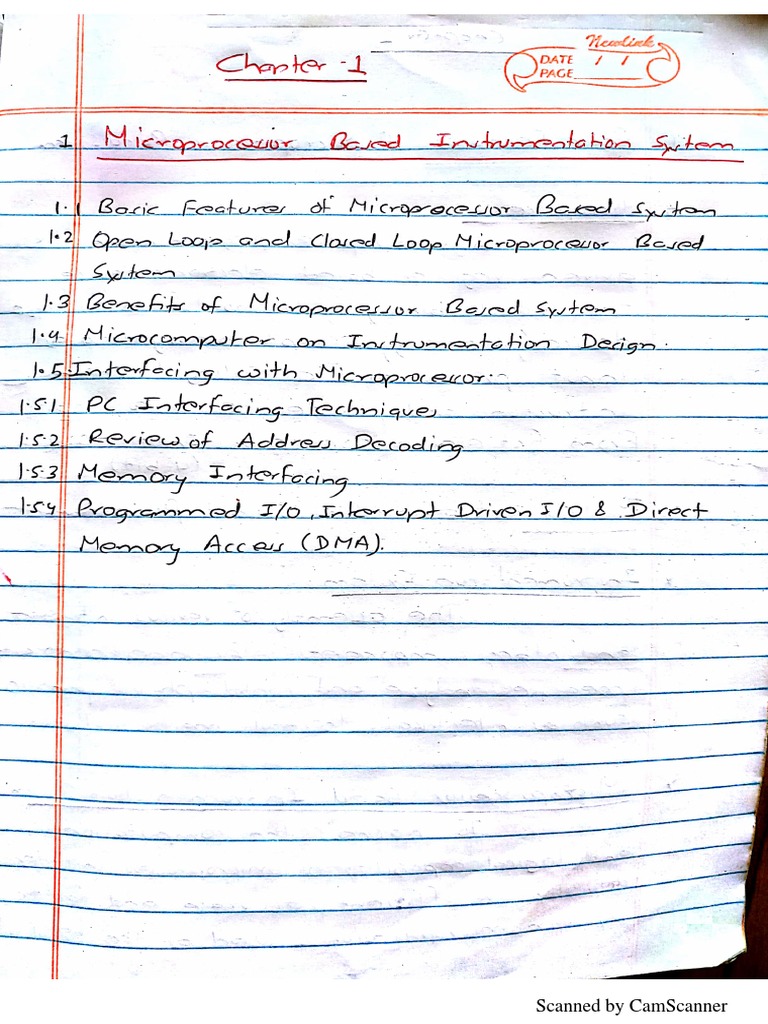 Chapter - 1
Newlink
DATE / /
PAGE
1 Microprocessor Based Instrumentation System
1.1 Basic Features of Microprocessor Based System
1.2 Open Loop and Closed Loop Microprocessor Based
System
1.3 Benefits of Microprocessor Based System
1.4 Microcomputer on Instrumentation Design.
1.5 Interfacing with Microprocessor.
1.5.1 PC Interfacing Techniques
1.5.2 Review of Address Decoding
1.5.3 Memory Interfacing
1.5.4 Programmed I/O, Interrupt Driven I/O & Direct
Memory Access (DMA).
Scanned by CamScanner